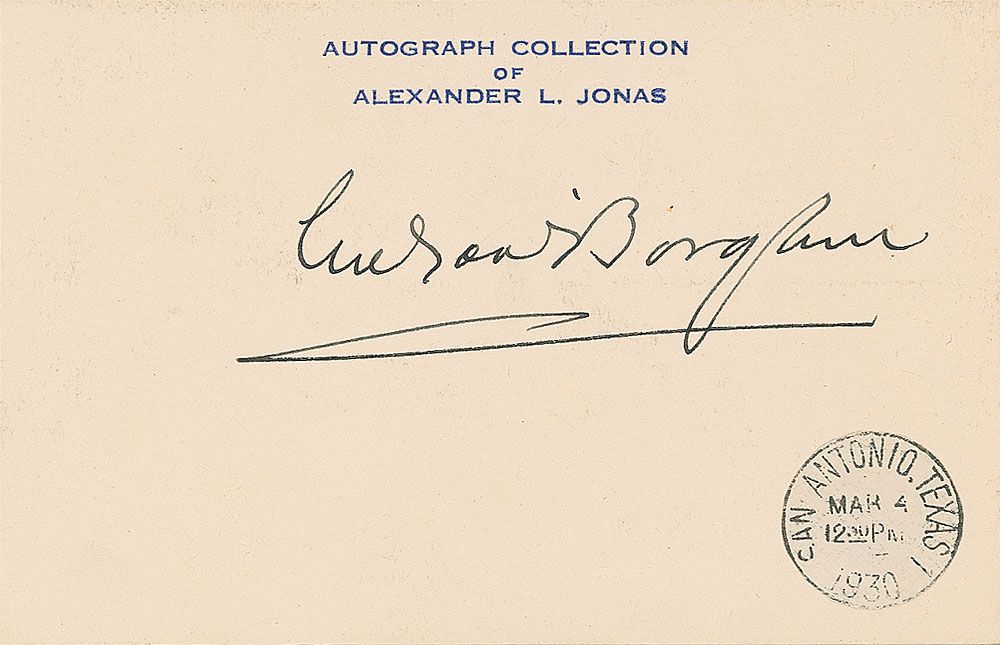 AUTOGRAPH COLLECTION
OF
ALEXANDER L. JONAS
Gutzon Borglum
SAN ANTONIO, TEXAS 1
MAR 4
12 30 PM
1930